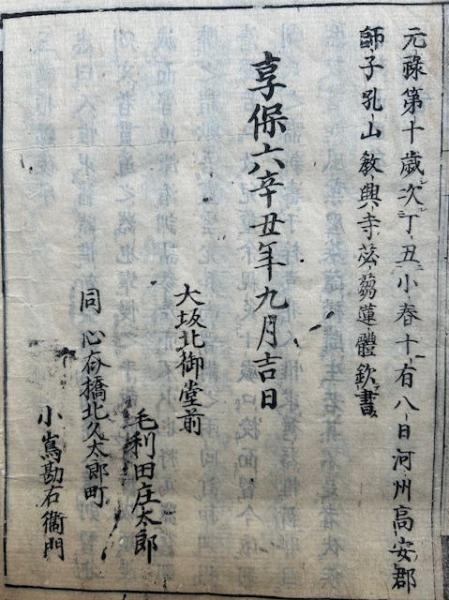 元祿第十歲次丁丑小春十有八日河州高安郡
師子吼山敎興寺苾蒭蓮體欽書
享保六辛丑年九月吉日
大坂北御堂前
毛利田庄太郎
同 心斎橋北久太郎町
小嶌勘右衞門